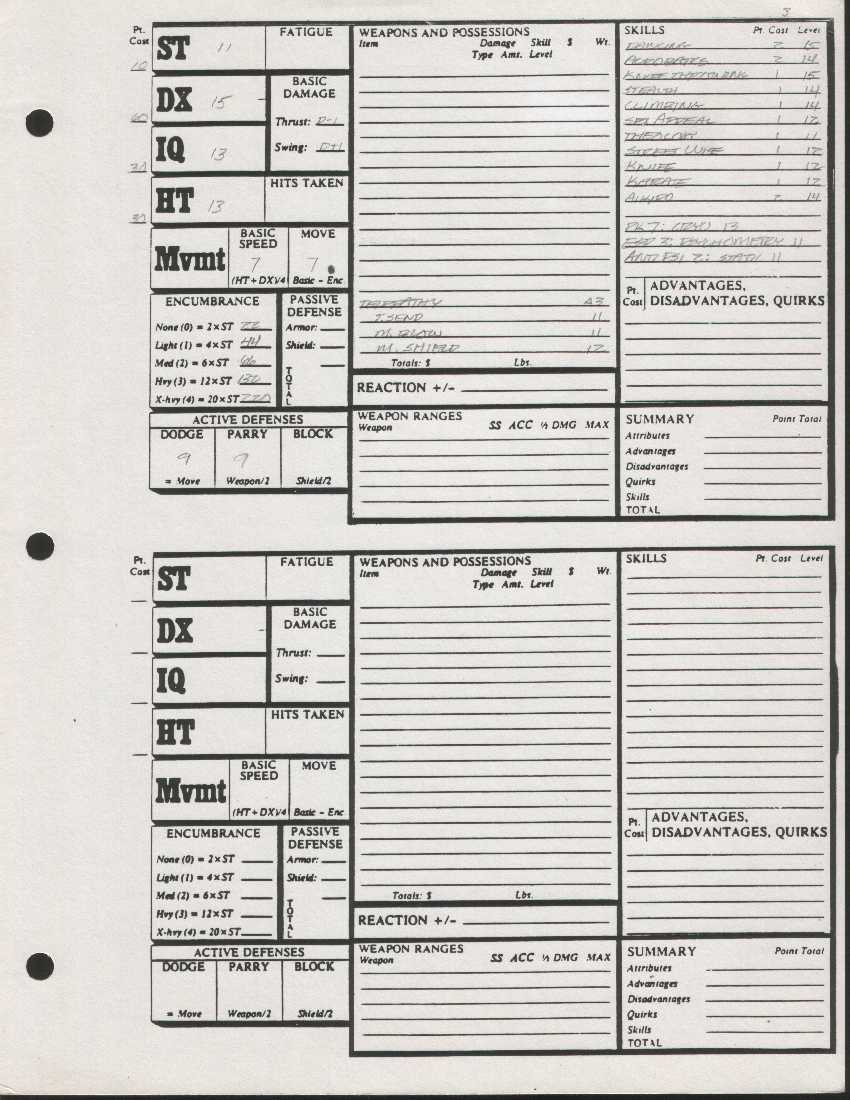 3
Pt. Cost
ST 11
10
FATIGUE
DX 15
60
BASIC DAMAGE
Thrust: D-1
Swing: D+1
IQ 13
30
HT 13
30
HITS TAKEN
Mvmt
BASIC SPEED
7
(HT+DX)/4
MOVE
7
Basic - Enc
ENCUMBRANCE
None (0) = 2×ST 22
Light (1) = 4×ST 44
Med (2) = 6×ST 66
Hvy (3) = 12×ST
X-hvy (4) = 20×ST 220
PASSIVE DEFENSE
Armor:
Shield:
TOTAL
ACTIVE DEFENSES
DODGE PARRY BLOCK
9 9
= Move Weapon/2 Shield/2
WEAPONS AND POSSESSIONS
Item Damage Skill $ Wt.
Type Amt. Level
TELEPATHY
T. SEND 11
M. BLOW 11
M. SHIELD 12
Totals: $ Lbs.
REACTION +/-
WEAPON RANGES
Weapon SS ACC ½ DMG MAX
SKILLS Pt. Cost Level
DANCING 2 15
ACROBATICS 2 14
KNIFE THROWING 1 15
STEALTH 1 14
CLIMBING 1 14
SEX APPEAL 1 12
1 11
1 12
KNIFE 1
KARATE 1 12
2 14
13
ESP 2: PSYCHOMETRY 11
ANTI PSI 2: STATIC 11
Pt. Cost
ADVANTAGES, DISADVANTAGES, QUIRKS
SUMMARY Point Total
Attributes
Advantages
Disadvantages
Quirks
Skills
TOTAL
Pt. Cost
ST
FATIGUE
DX
BASIC DAMAGE
Thrust:
Swing:
IQ
HT
HITS TAKEN
Mvmt
BASIC SPEED
(HT+DX)/4
MOVE
Basic - Enc
ENCUMBRANCE
None (0) = 2×ST
Light (1) = 4×ST
Med (2) = 6×ST
Hvy (3) = 12×ST
X-hvy (4) = 20×ST
PASSIVE DEFENSE
Armor:
Shield:
TOTAL
ACTIVE DEFENSES
DODGE PARRY BLOCK
= Move Weapon/2 Shield/2
WEAPONS AND POSSESSIONS
Item Damage Skill $ Wt.
Type Amt. Level
Totals: $ Lbs.
REACTION +/-
WEAPON RANGES
Weapon SS ACC ½ DMG MAX
SKILLS Pt. Cost Level
Pt. Cost
ADVANTAGES, DISADVANTAGES, QUIRKS
SUMMARY Point Total
Attributes
Advantages
Disadvantages
Quirks
Skills
TOTAL